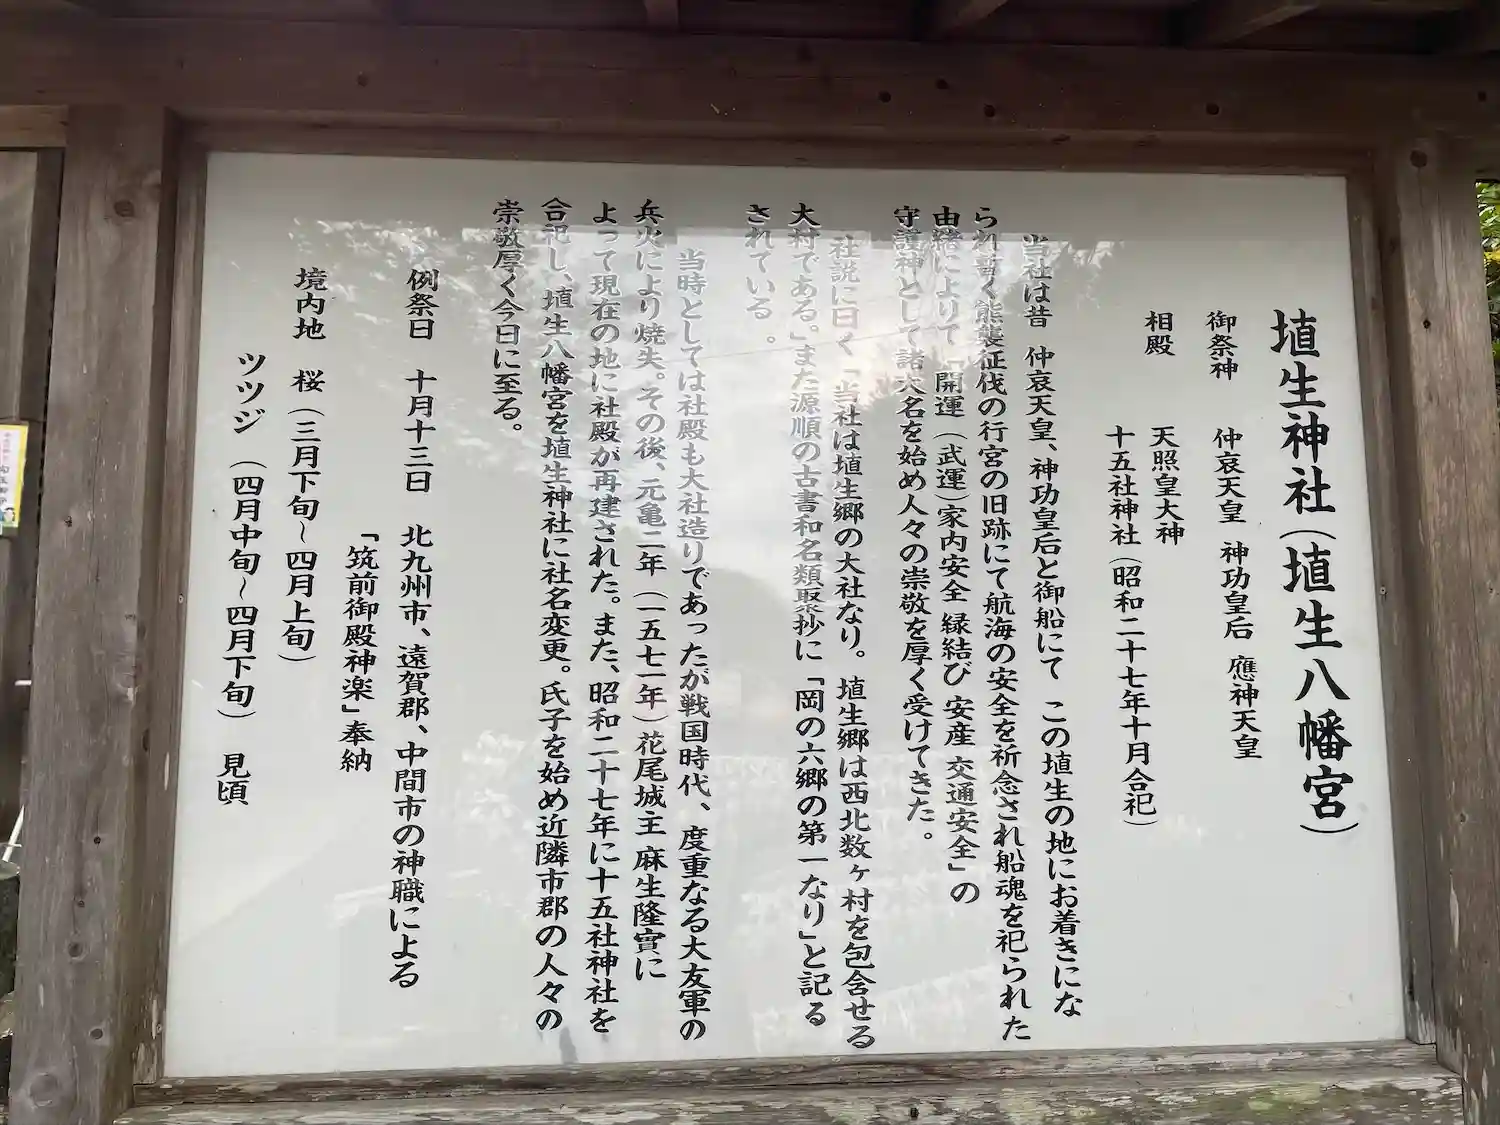 埴生神社(埴生八幡宮)
御祭神 仲哀天皇 神功皇后 應神天皇
相殿 天照皇大神
十五社神社(昭和二十七年十月合祀)
当社は昔 仲哀天皇、神功皇后と御船にて この埴生の地にお着きにな
られ暫く熊襲征伐の行宮の旧跡にて航海の安全を祈念され船魂を祀られた
由緒によりて「開運(武運)家内安全 縁結び 安産 交通安全」の
守護神として諸大名を始め人々の崇敬を厚く受けてきた。
社説に曰く「当社は埴生郷の大社なり。埴生郷は西北数ヶ村を包含せる
大村である。」また源順の古書和名類聚抄に「岡の六郷の第一なり」と記る
されている。
当時としては社殿も大社造りであったが戦国時代、度重なる大友軍の
兵火により焼失。その後、元亀二年(一五七一年)花尾城主 麻生隆實に
よって現在の地に社殿が再建された。また、昭和二十七年に十五社神社を
合祀し、埴生八幡宮を埴生神社に社名変更。氏子を始め近隣市郡の人々の
崇敬厚く今日に至る。
例祭日 十月十三日 北九州市、遠賀郡、中間市の神職による
「筑前御殿神楽」奉納
境内地 桜(三月下旬~四月上旬)
ツツジ(四月中旬~四月下旬) 見頃